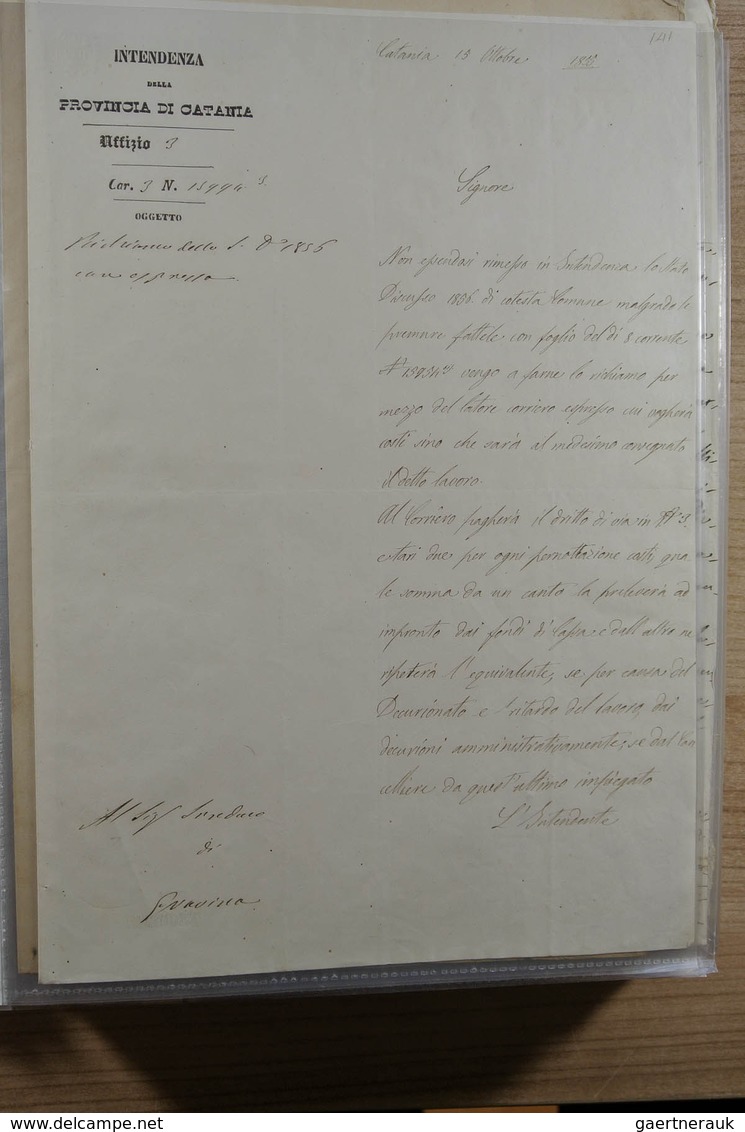 141
INTENDENZA
DELLA
PROVINCIA DI CATANIA
Uffizio 3
Car. 3 N. 15994
OGGETTO
Richiamo dello S. D. 1856
con espresso
Catania 15 Ottobre
Signore
Non essendosi rimesso in Intendenza lo Stato
Discusso 1856. di cotesta Comune malgrado le
premure fattele con foglio del di 8 corrente
vengo a farne lo richiamo per
mezzo del latore corriero espresso cui vagherà
costì sino che sarà al medesimo consegnato
il detto lavoro.
Al Corriero pagherà il dritto di via in
e tarì due per ogni pernottazione costì, qua
le somma da un canto la preleverà ad
impronto dai fondi di Cassa e dall'altro ne
ripeterà l'equivalente, se per causa del
Decurionato è il ritardo del lavoro, dai
decurioni amministrativamente, se dal Can
celliere da quest'ultimo impiegato
L'Intendente
Al Sig. Sindaco
di
Gravina
gaertnerauk / www.delcampe.net